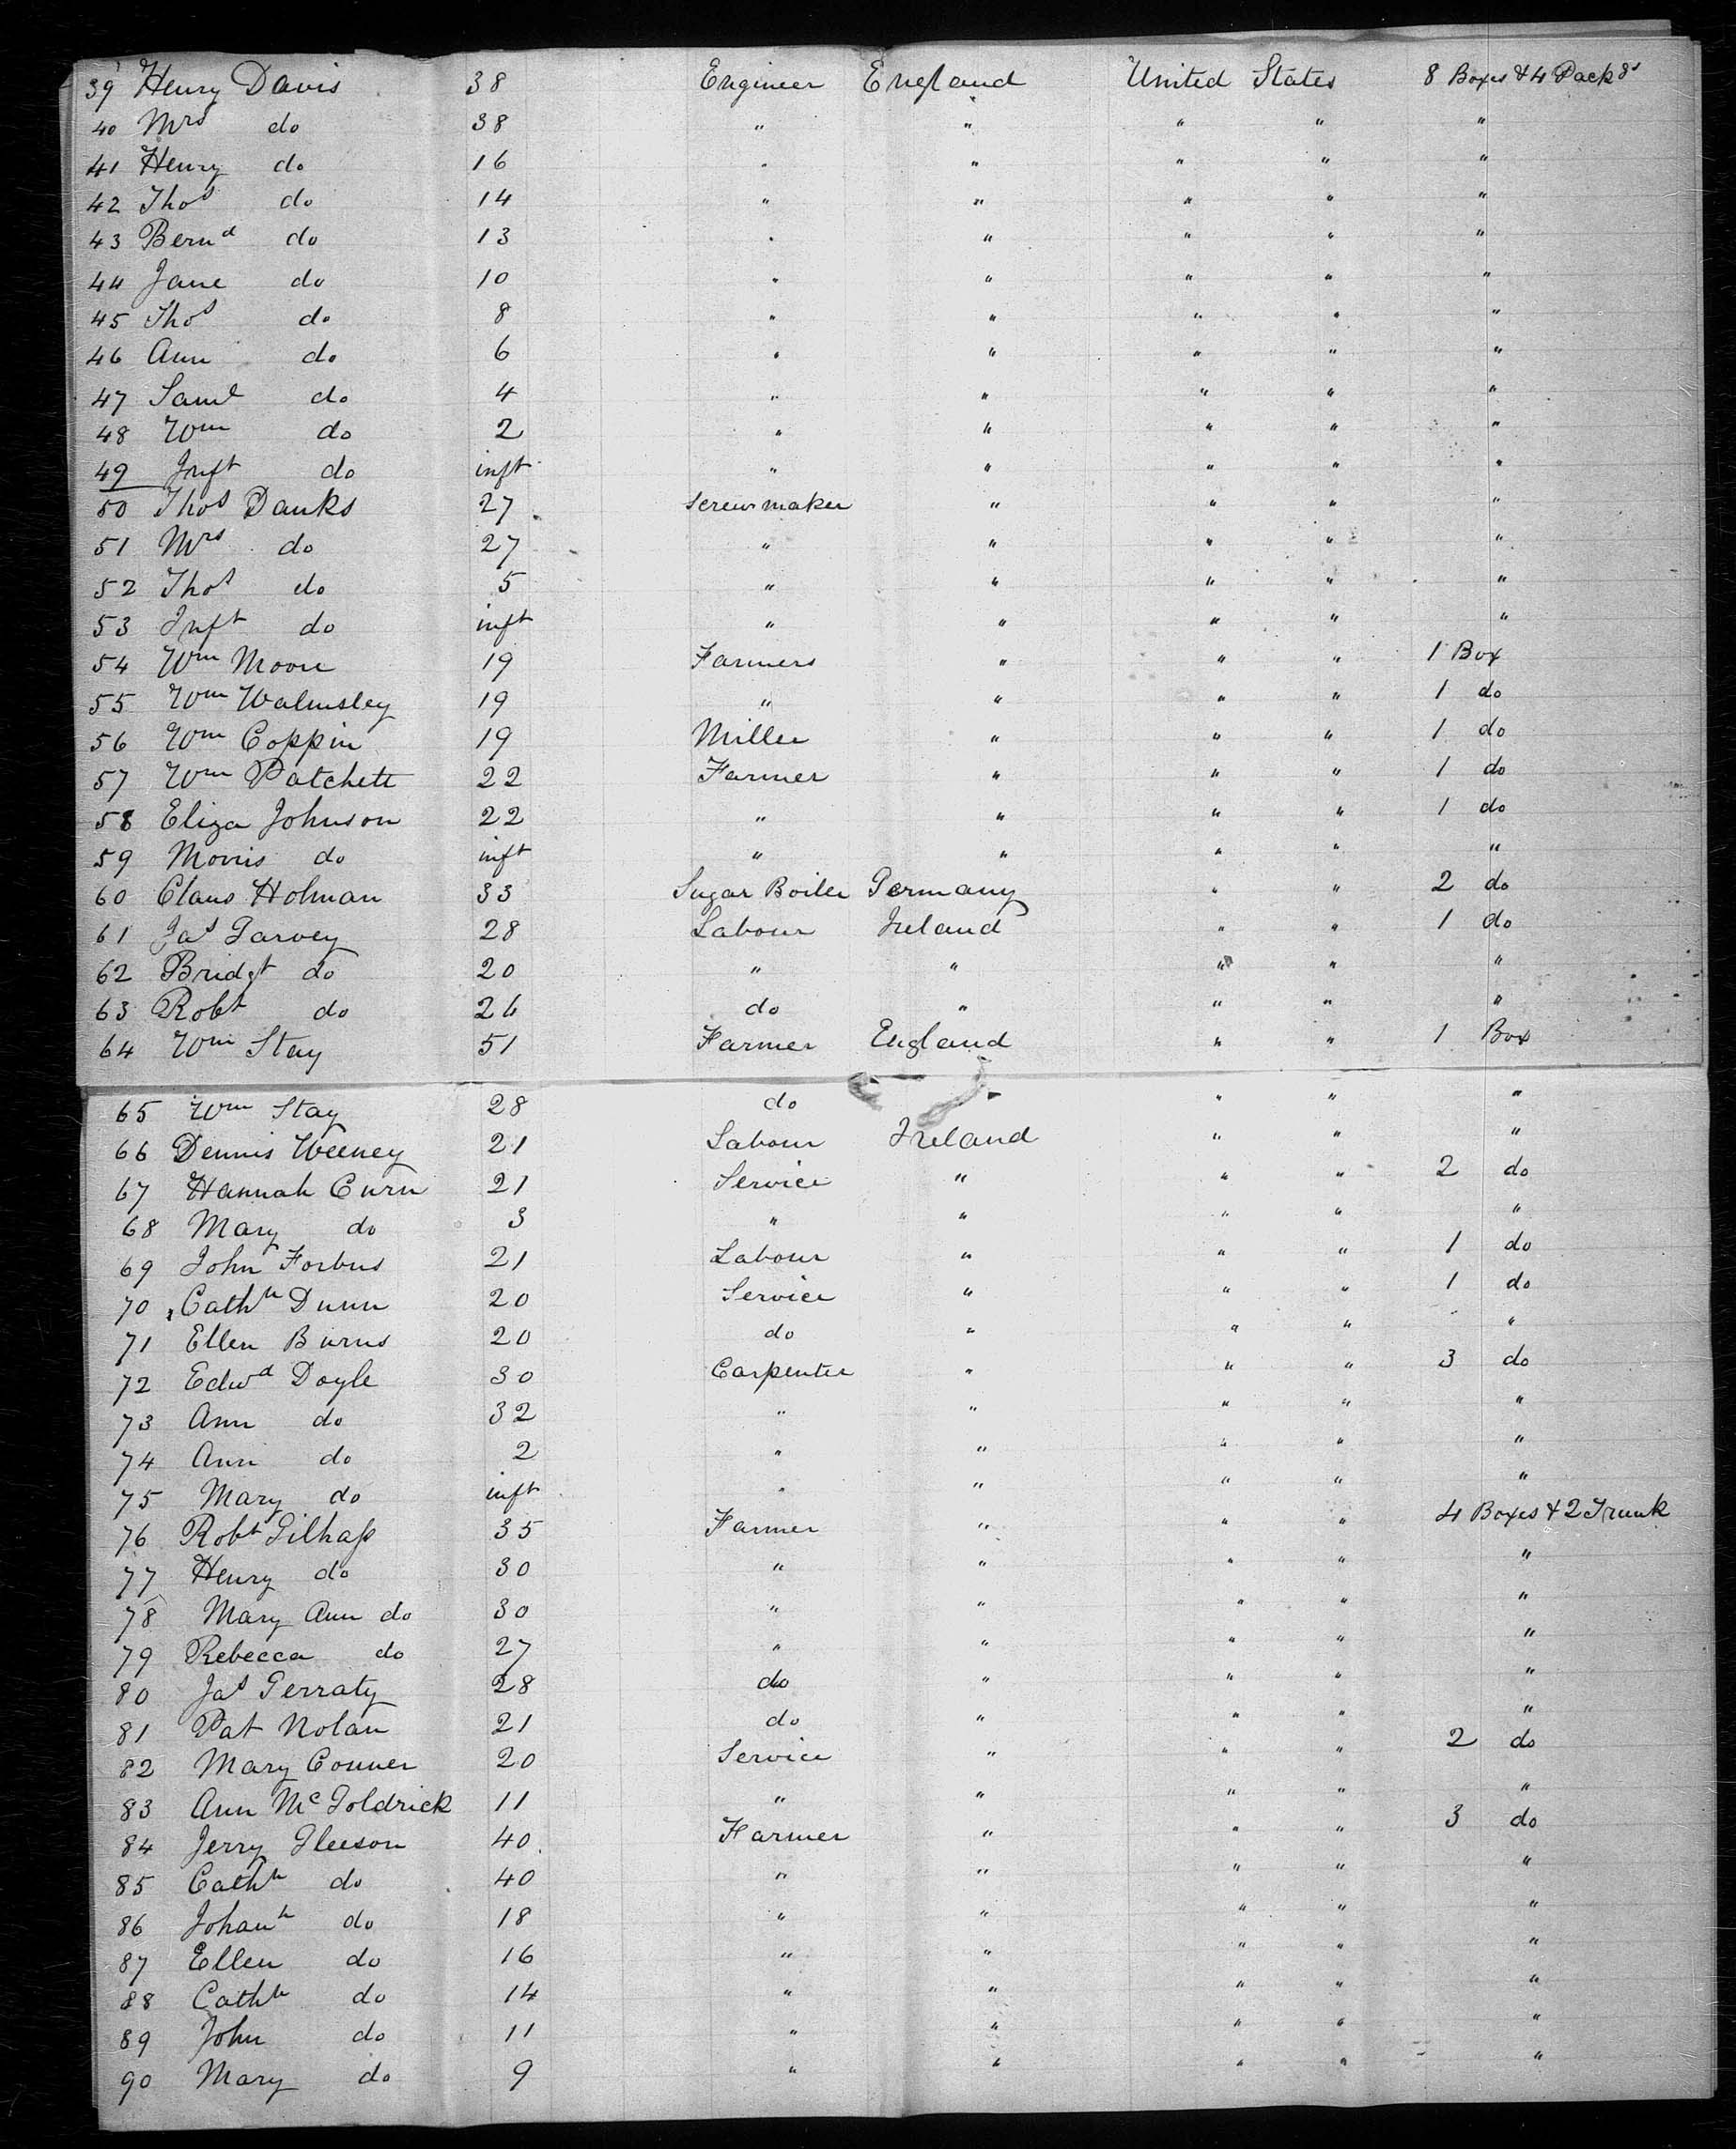 39 Henry Davis 38 Engineer England United States 8 Boxes & 4 Packgs
40 Mrs do 38 " " " " "
41 Henry do 16 " " " " "
42 Thos do 14 " " " " "
43 Bernd do 13 " " " " "
44 Jane do 10 " " " " "
45 Thos do 8 " " " " "
46 Ann do 6 " " " " "
47 Saml do 4 " " " " "
48 Wm do 2 " " " " "
49 Inft do inft " " " " "
50 Thos Danks 27 Screw maker " " " "
51 Mrs do 27 " " " " "
52 Thos do 5 " " " " "
53 Inft do inft " " " " "
54 Wm Moon 19 Farmers " " " 1 Box
55 Wm Walmsley 19 " " " " 1 do
56 Wm Coppin 19 Miller " " " 1 do
57 Wm Patchett 22 Farmer " " " 1 do
58 Eliza Johnson 22 " " " " 1 do
59 Morris do inft " " " " "
60 Claus Holman 33 Sugar Boiler Germany " " 2 do
61 Jas Garvey 28 Labour Ireland " " 1 do
62 Bridgt do 20 " " " " "
63 Robt do 26 do " " " "
64 Wm Stay 51 Farmer England " " 1 Box
65 Wm Stay 28 do " " " "
66 Dennis Weeney 21 Labour Ireland " " "
67 Hannah Curn 21 Service " " " 2 do
68 Mary do 3 " " " " "
69 John Forbus 21 Labour " " " 1 do
70 Cathn Dunn 20 Service " " " 1 do
71 Ellen Burns 20 do " " " "
72 Edwd Doyle 30 Carpenter " " " 3 do
73 Ann do 32 " " " " "
74 Ann do 2 " " " " "
75 Mary do inft " " " " "
76 Robt Gilhass 35 Farmer " " " 4 Boxes & 2 Trunk
77 Henry do 30 " " " " "
78 Mary Ann do 30 " " " " "
79 Rebecca do 27 " " " " "
80 Jas Gerraty 28 do " " " "
81 Pat Nolan 21 do " " " "
82 Mary Conner 20 Service " " " 2 do
83 Ann McGoldrick 11 " " " " "
84 Jerry Gleeson 40 Farmer " " " 3 do
85 Cathn do 40 " " " " "
86 Johanh do 18 " " " " "
87 Ellen do 16 " " " " "
88 Cathn do 14 " " " " "
89 John do 11 " " " " "
90 Mary do 9 " " " " "